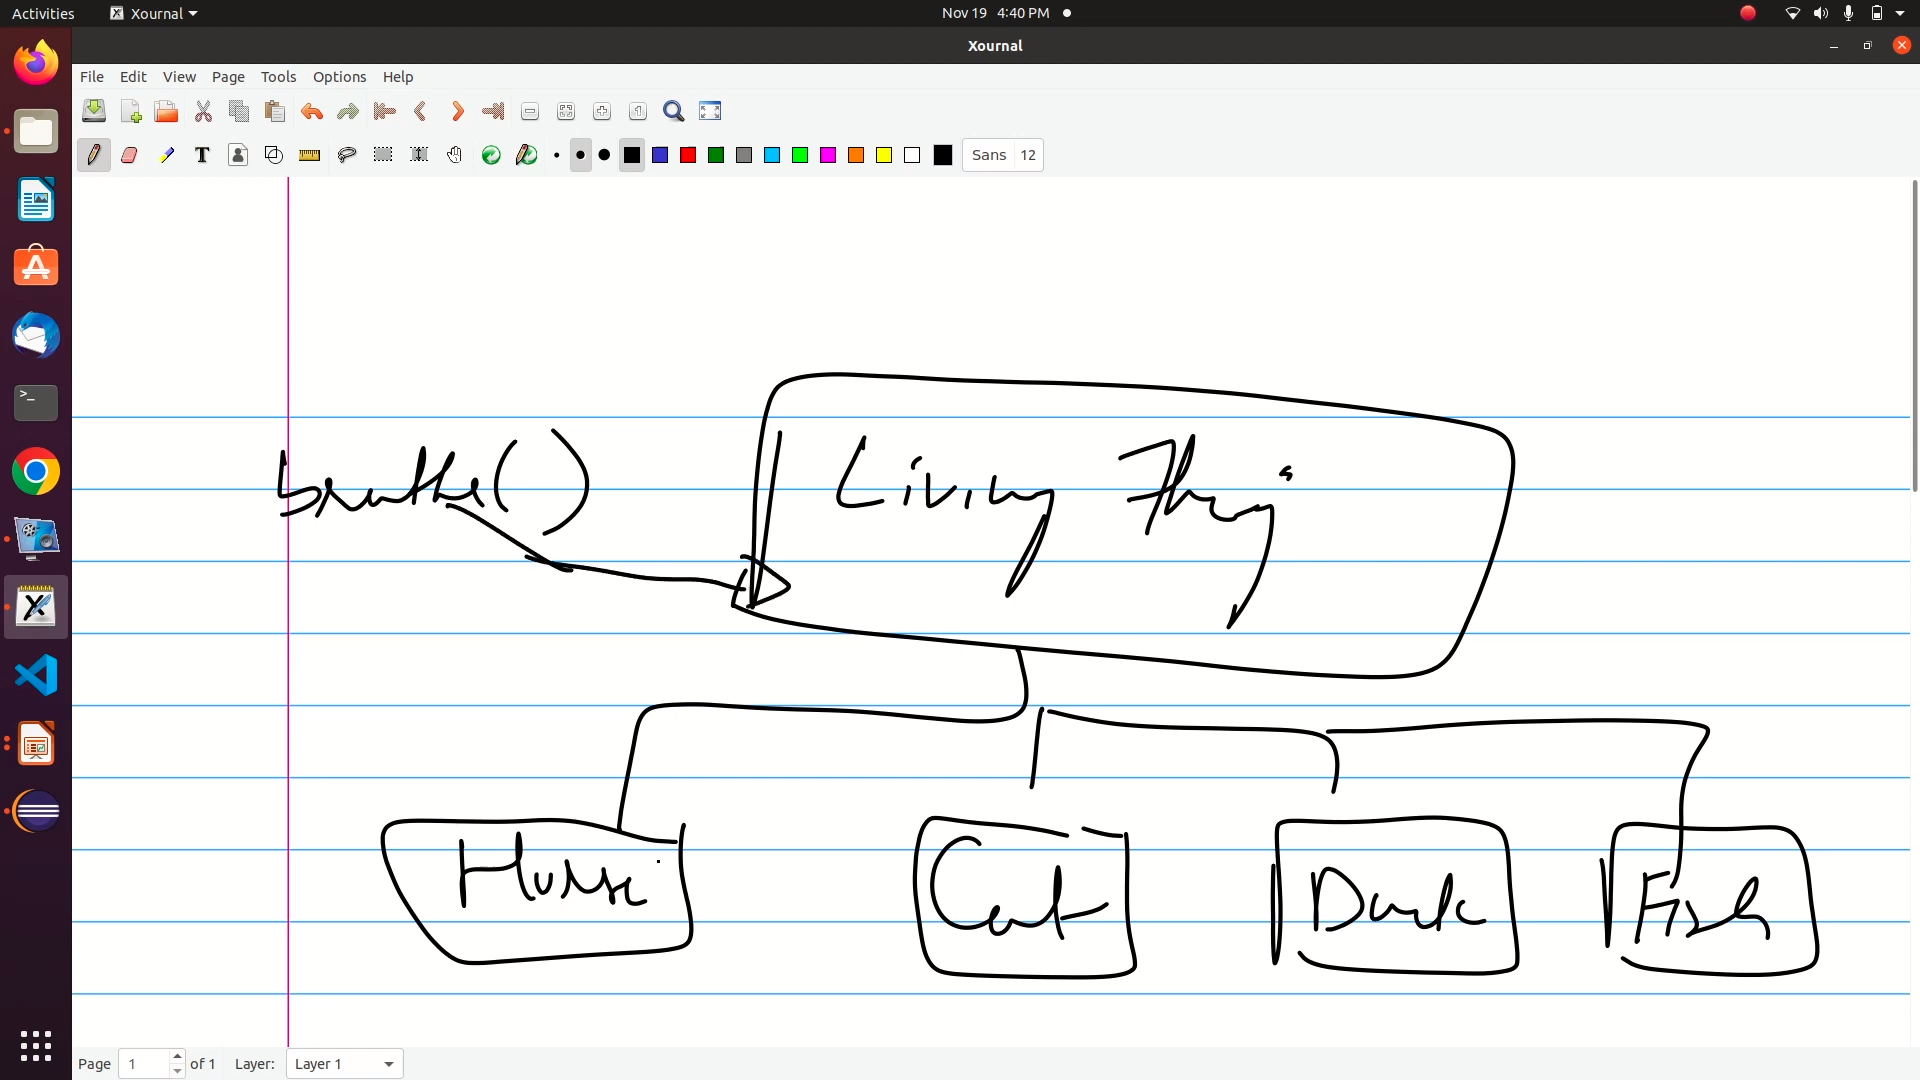 Activities Xournal Nov 19 4:40 PM
Xournal
File Edit View Page Tools Options Help
T Sans 12
breathe() Living Things
Cat Duck Fish
Page 1 of 1 Layer: Layer 1